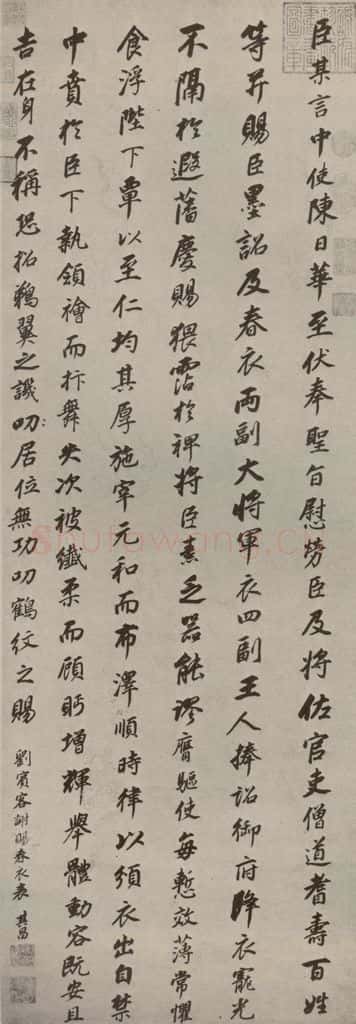 臣某言中使陳日華至伏奉聖旨慰勞臣及將佐官吏僧道耆壽百姓
等并賜臣墨詔及春衣兩副大將軍衣四副王人捧詔御府降衣寵光
不隔於遐藩慶賜猥霑於裨將臣素乏器能謬膺驅使每慙效薄常懼
食浮陛下覃以至仁均其厚施宰元和而布澤順時律以頒衣出自禁
中賁於臣下執領襘而抃舞失次被纖柔而顧眄增輝舉體動容既安且
吉在身不稱恐招鵜翼之譏叨居位無功叨鶴紋之賜
劉賓客謝賜春衣表 其昌